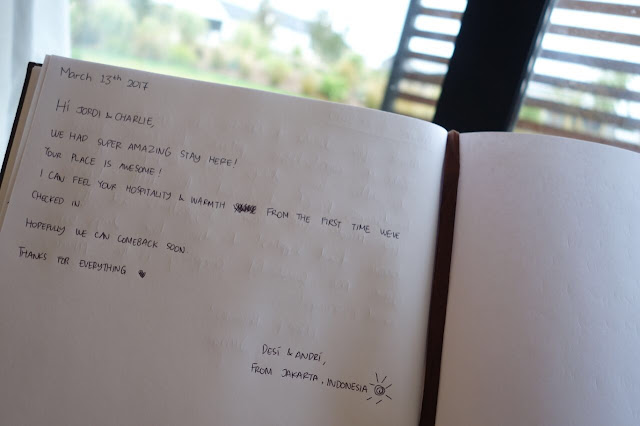 March 13th 2017
Hi JORDI & CHARLIE,
WE HAD SUPER AMAZING STAY HERE!
YOUR PLACE IS AWESOME!
I CAN FEEL YOUR HOSPITALITY & WARMTH FROM THE FIRST TIME WE'VE
CHECKED IN.
HOPEFULLY WE CAN COMEBACK SOON.
THANKS FOR EVERYTHING
DESI & ANDRI,
FROM JAKARTA, INDONESIA